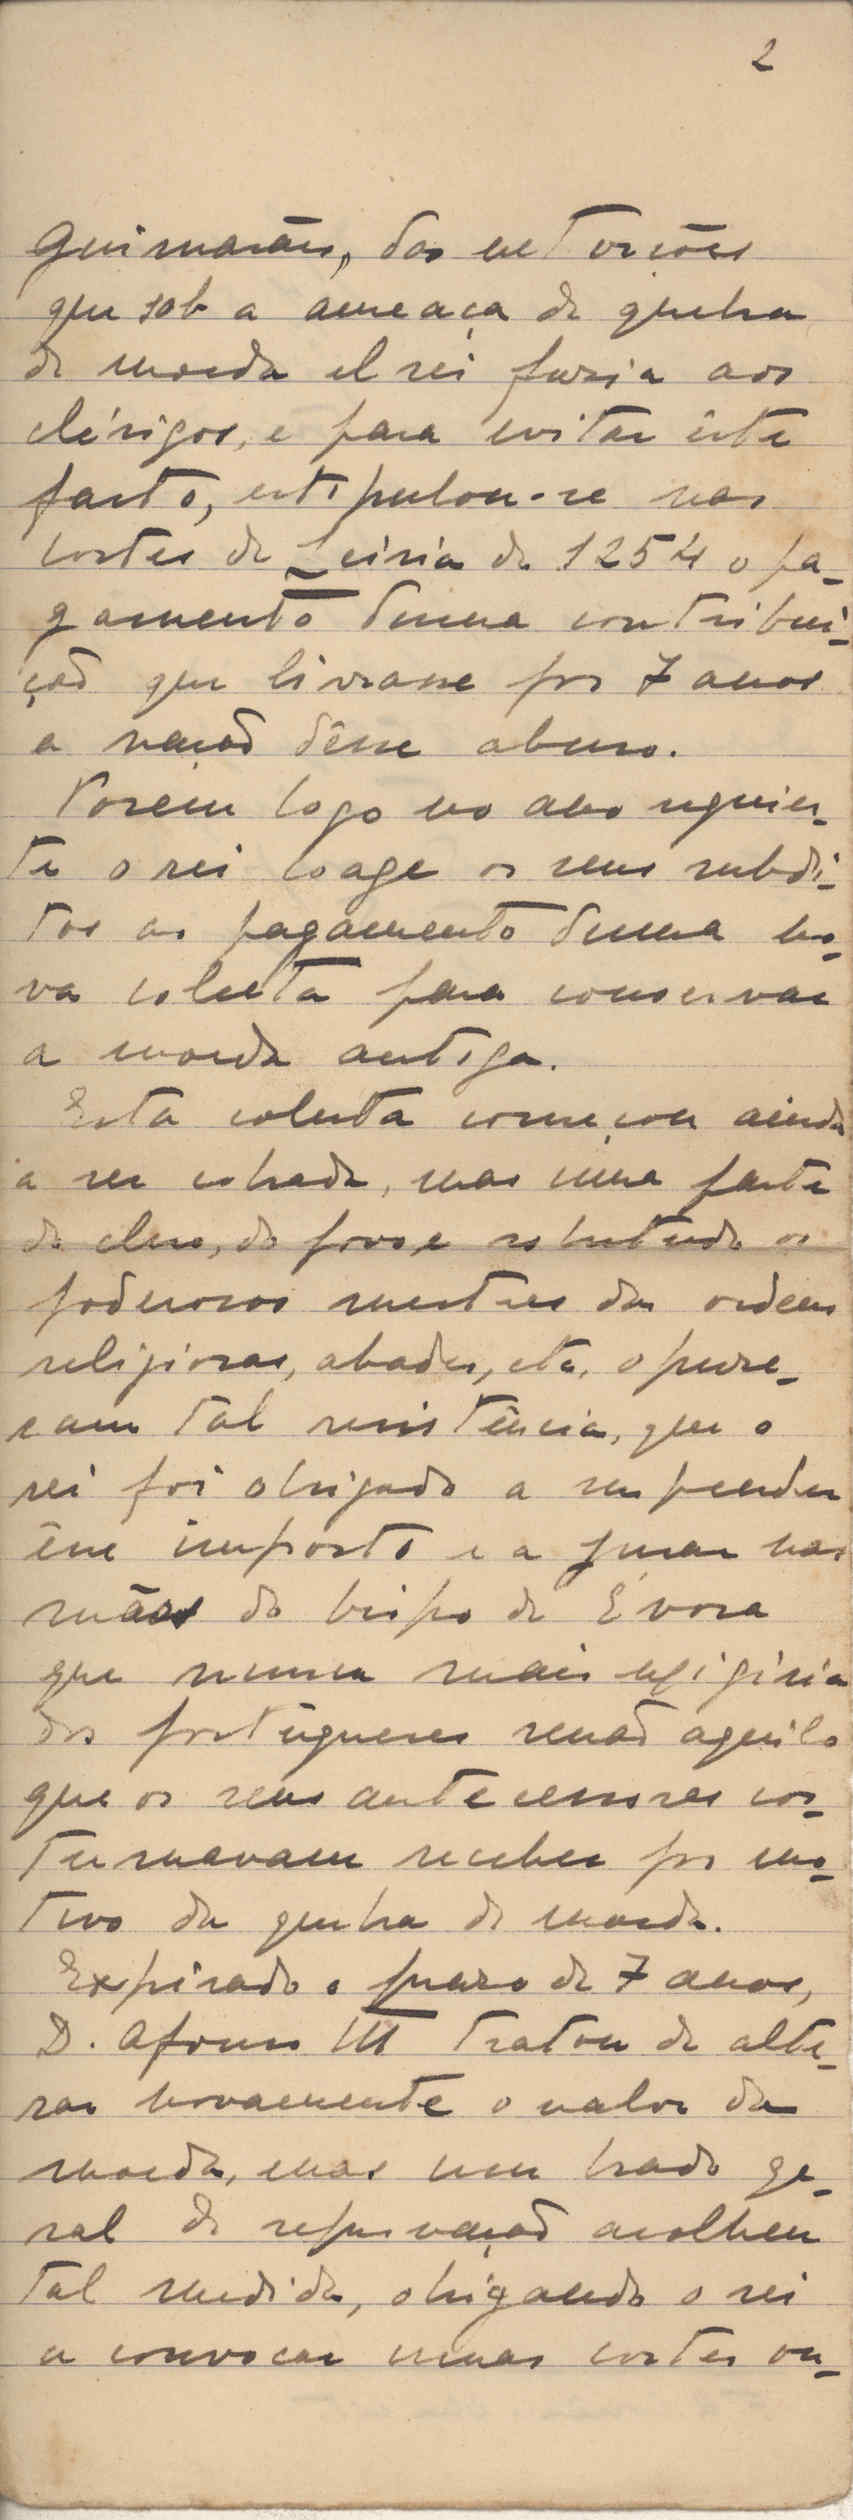 2
Guimarães, das extorsões
que sob a ameaça de quebra
de moeda el rei fazia aos
clérigos, e para evitar êste
facto, estipulou-se nas
cortes de Leiria de 1254 o pa-
gamento duma contribui-
ção que livrasse por 7 anos
a nação dêsse abuso.
Porém logo no ano seguin-
te o rei coage os seus subdi-
tos ao pagamento duma no-
va colecta para conservar
a moeda antiga.
Esta colecta começou ainda
a ser cobrada, mas uma parte
do clero, do povo e sobretudo os
poderosos mestres das ordens
religiosas, abades, etc. opuze-
ram tal resistência, que o
rei foi obrigado a suspender
êsse imposto e a jurar nas
mãos do bispo de Évora
que nunca mais exigiria
dos portugueses senão aquilo
que os seus antecessores cos-
tumavam receber por mo-
tivo da quebra de moeda.
Expirado o prazo de 7 anos,
D. Afonso III tratou de alte-
rar novamente o valor da
moeda, mas um brado ge-
ral de reprovação acolheu
tal medida, obrigando o rei
a convocar umas cortes ou-